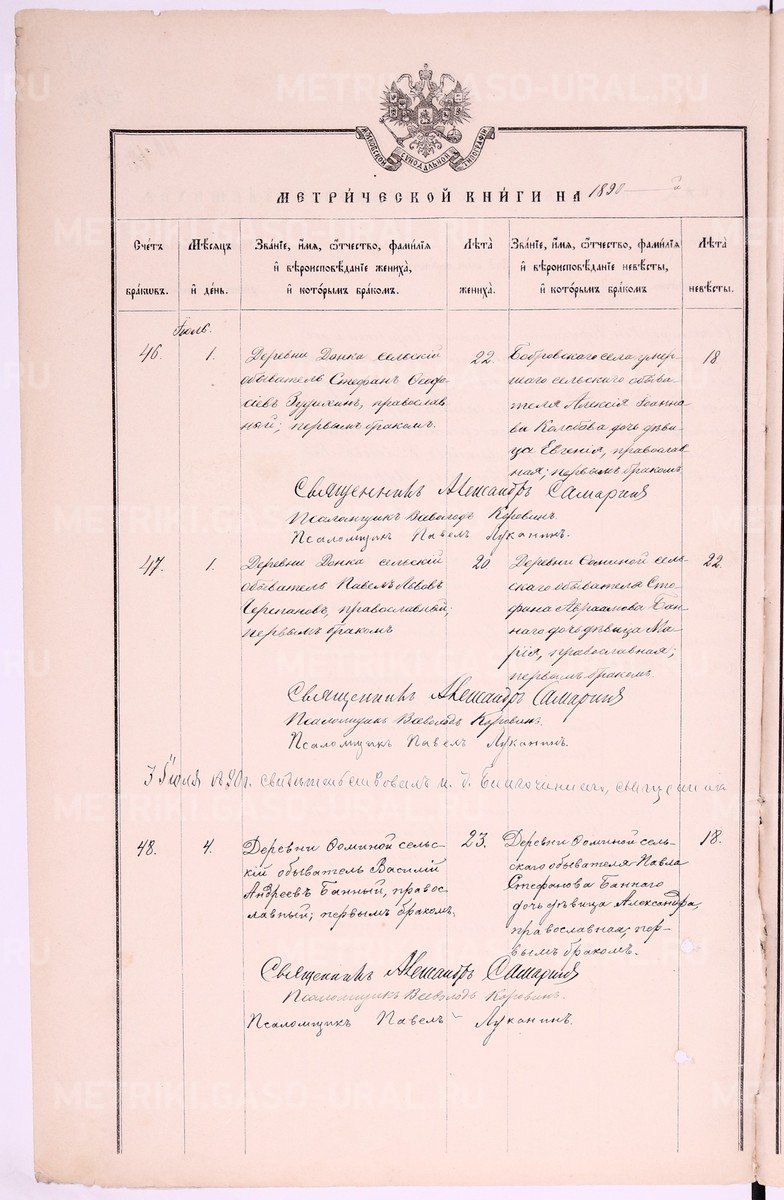 МОСКОВСКОЙ СѴНОДАЛЬНОЙ ТИПОГРАФІИ
МЕТРИ́ЧЕСКОЙ КНИ́ГИ НА 1890
Сче́тъ бра́ковъ.
Мѣ́сяцъ и҆ де́нь.
Зва́нїе, и҆́мѧ, ѻ҆́тчество, фами́лїѧ и҆ вѣроисповѣ́данїе жениха̀, и҆ кото́рымъ бра́комъ.
Лѣта̀ жениха̀.
Зва́нїе, и҆́мѧ, ѻ҆́тчество, фами́лїѧ и҆ вѣроисповѣ́данїе невѣ́сты, и҆ кото́рымъ бра́комъ
Лѣта̀ невѣ́сты.
Іюль.
46.
1.
Деревни Данка сельскій
обыватель Стефанъ
православ
ный; первымъ бракомъ.
22.
Бобровскаго села умер
шаго сельскаго обыва
теля Алексія Іоанно
ва Колобова дочь дѣви
ца Евгенія, православ
ная; первымъ бракомъ
18
Священникъ Александръ Самаринъ
Псаломщикъ Всеволодъ Коровинъ.
Псаломщикъ Павелъ Луканинъ.
47.
1.
Деревни Данка сельскій
обыватель Павелъ Львовъ
Черепановъ, православный;
первымъ бракомъ
20
Деревни Ѳоминой сель
скаго обывателя Сте
фана Авраамова Бан
наго дочь дѣвица Ма
рія, православная;
первымъ бракомъ.
22.
Священникъ Александръ Самаринъ
Псаломщикъ Всеволодъ Коровинъ.
Псаломщикъ Павелъ Луканинъ.
3 Іюля 1890г. свидѣтельствовалъ и. д. Благочиннаго, священникъ
48.
4.
Деревни Ѳоминой сель
скій обыватель Василій
Андреевъ Банный, право
славный; первымъ бракомъ.
23.
Деревни Ѳоминой сель
скаго обывателя Павла
Стефанова Баннаго
дочь дѣвица Александра,
православная; пер
вымъ бракомъ.
18.
Священникъ Александръ Самаринъ
Псаломщикъ Всеволодъ Коровинъ.
Псаломщикъ Павелъ Луканинъ.
METRIKI.GASO-URAL.RU